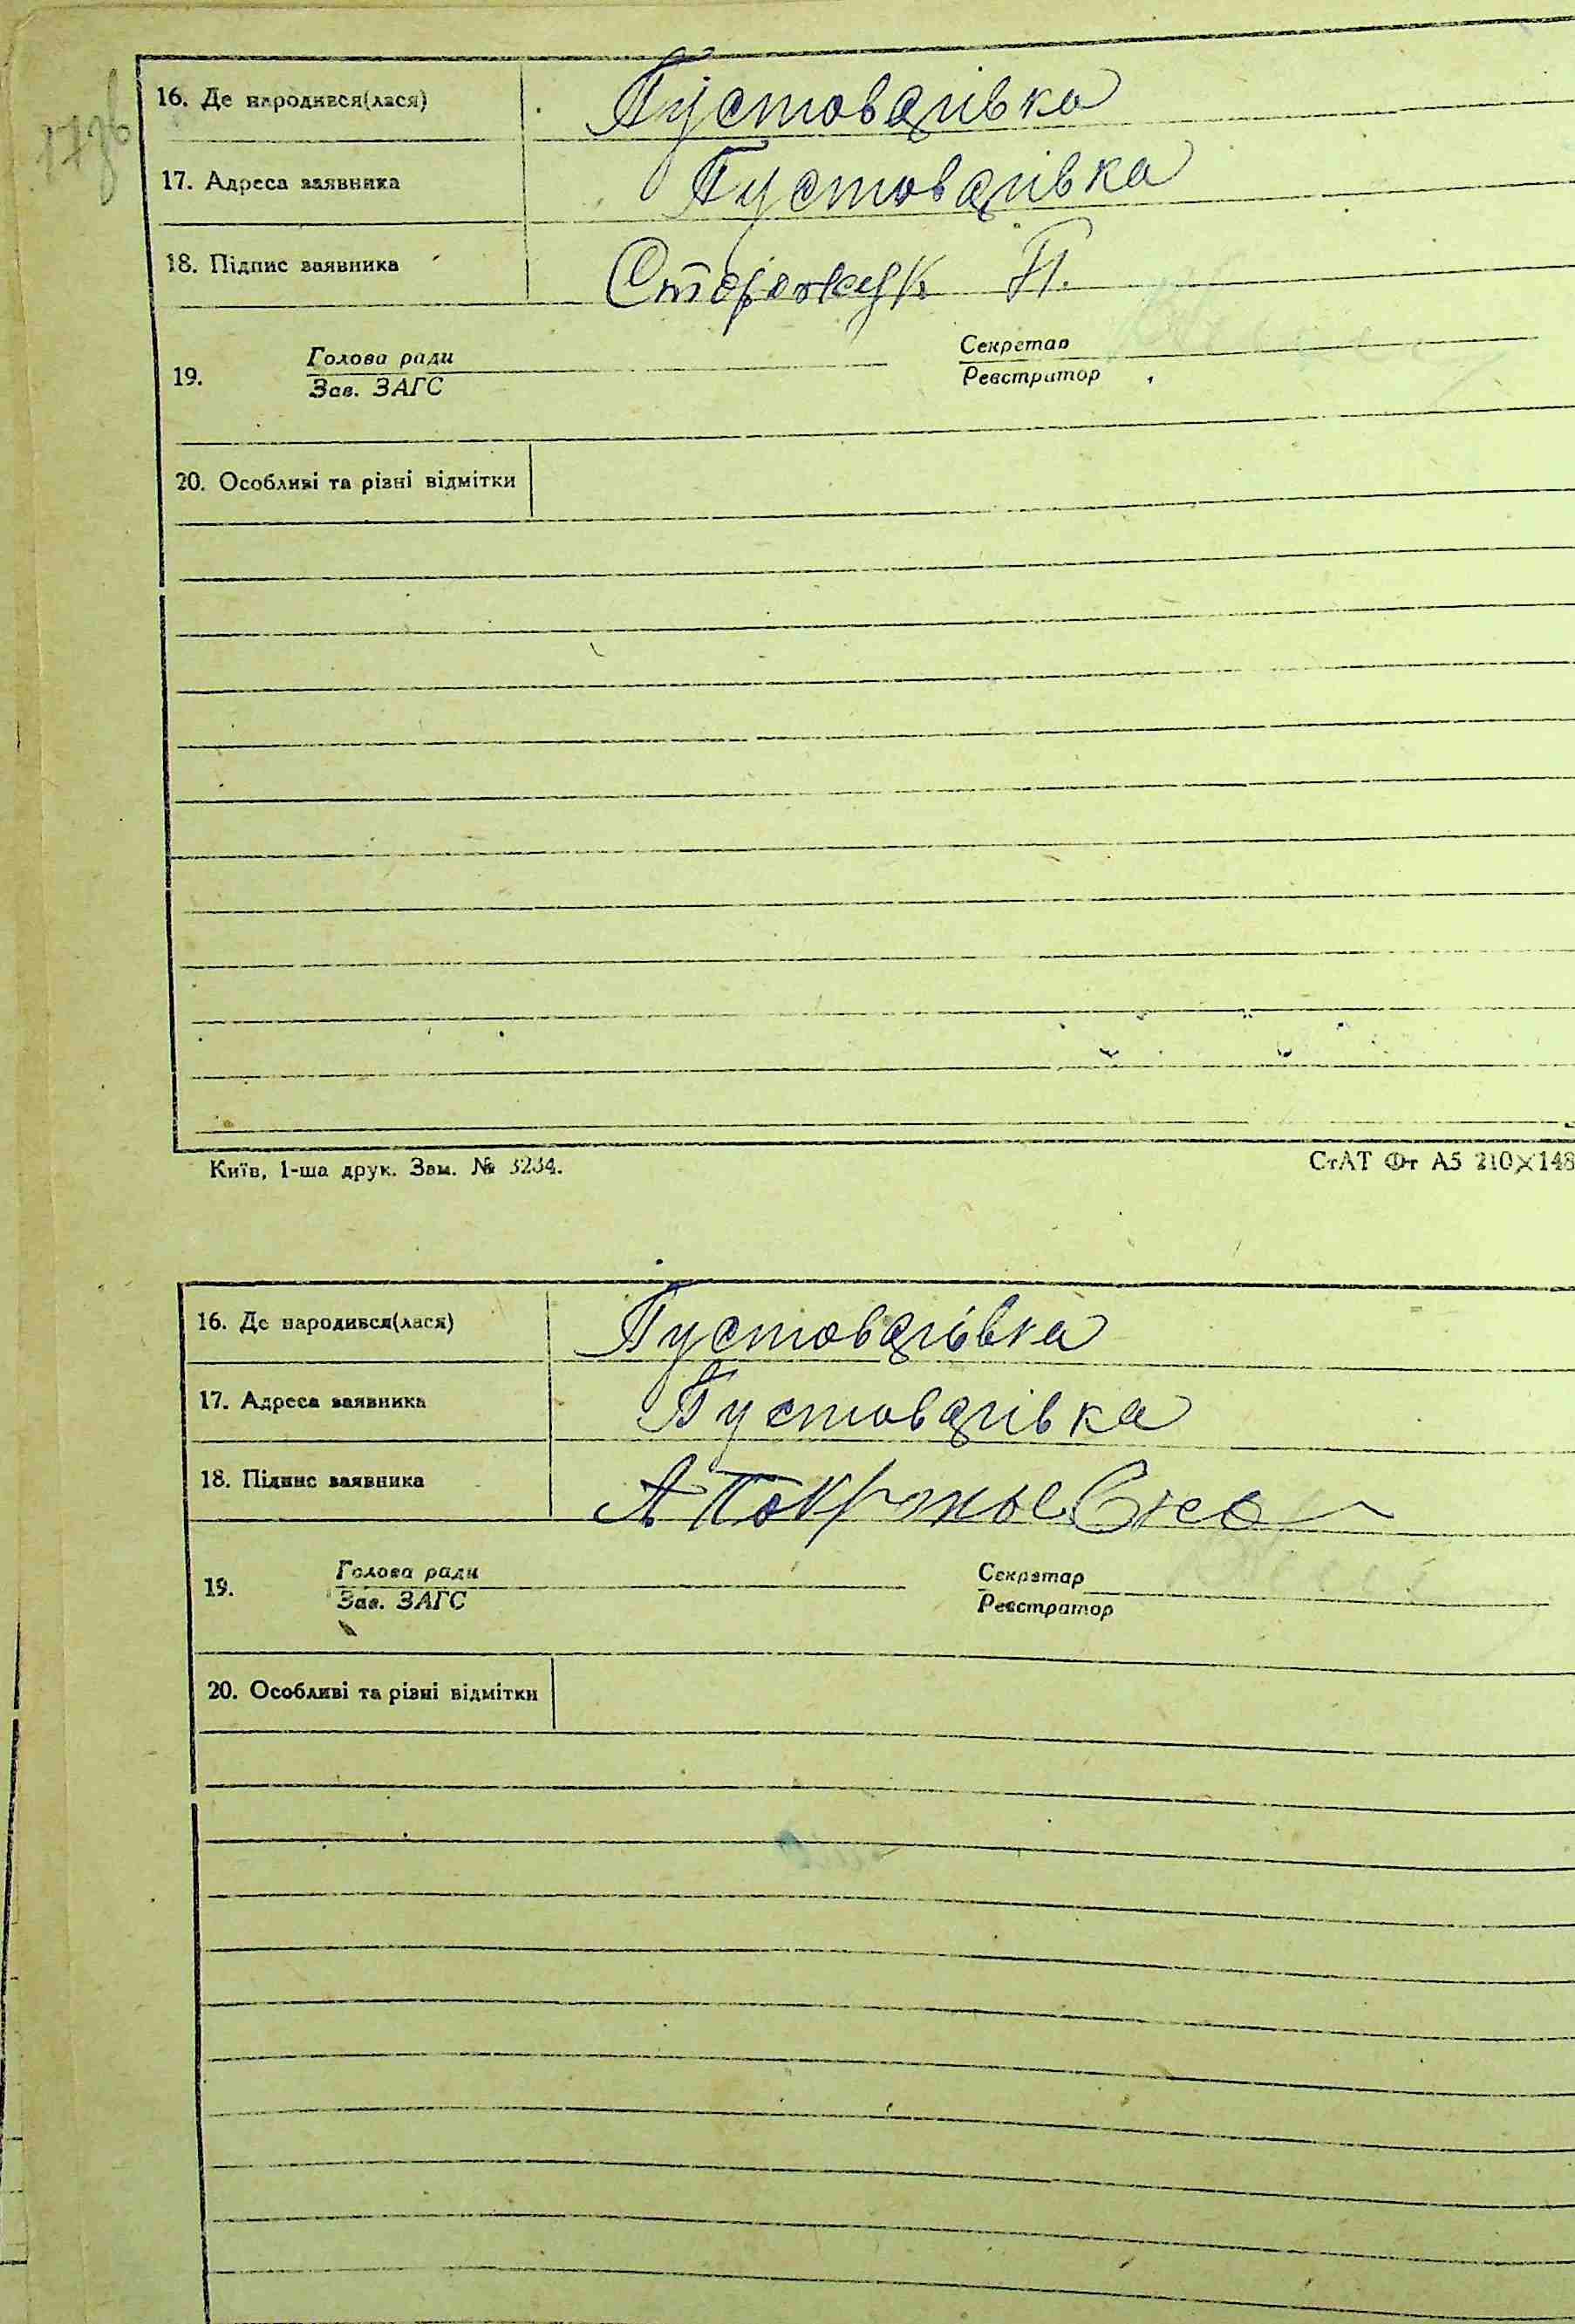 16. Де народився(лася) Пустоварівка
17. Адреса заявника Пустоварівка
18. Підпис заявника Сторожук П.
Голова ради Секретар
19.
Зав. ЗАГС Реєстратор
20. Особливі та різні відмітки
Київ, 1-ша друк. Зам. № 3234.
СтАТ Фт А5 210×148
16. Де народився(лася) Пустоварівка
17. Адреса заявника Пустоварівка
18. Підпис заявника А
Голова ради Секретар
19.
Зав. ЗАГС Реєстратор
20. Особливі та різні відмітки